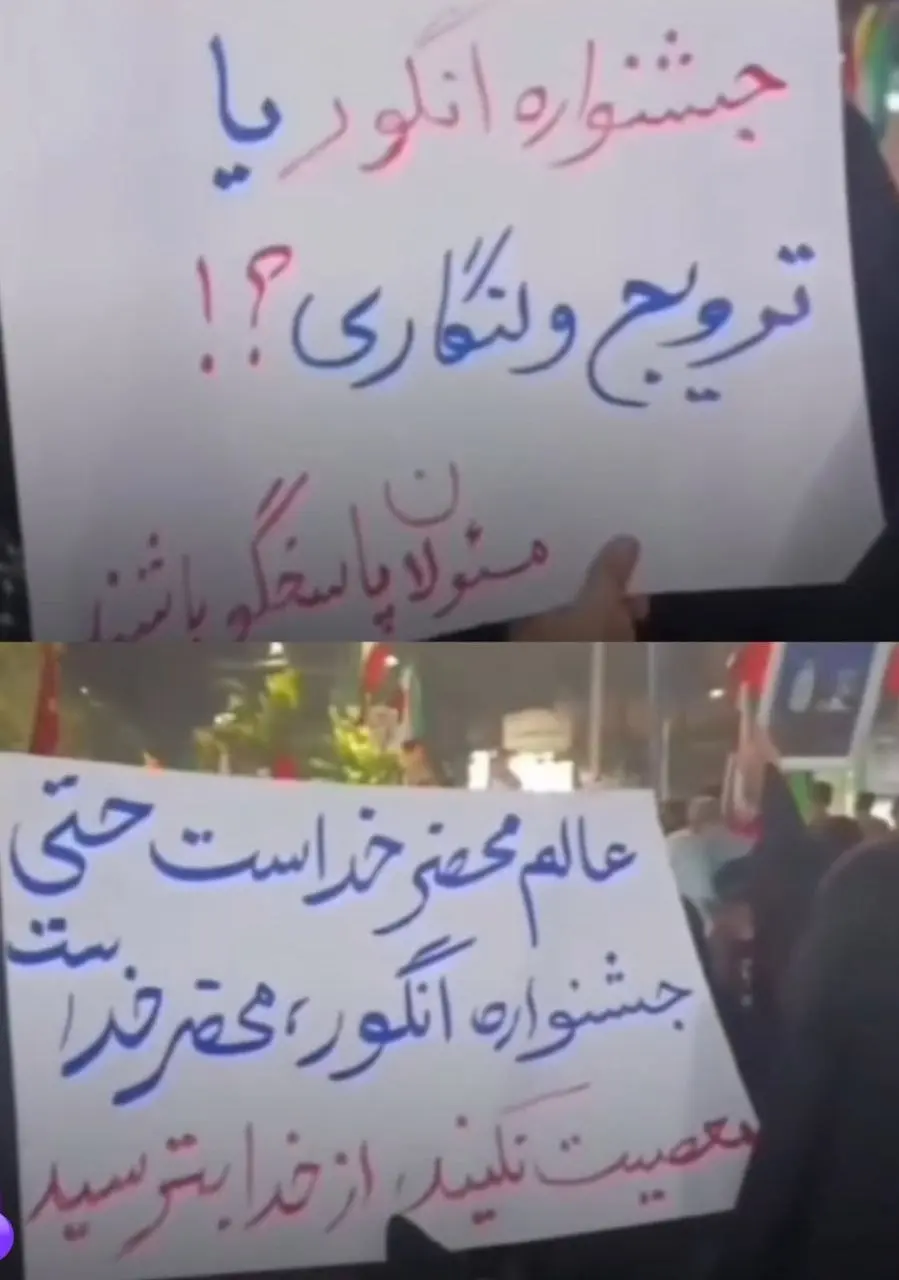 جشنواره انگور یا
ترویج ولنگاری؟!
مسئولان پاسخگو باشند
عالم محضر خداست حتی
جشنواره انگور، محضر خداست
معصیت نکنید، از خدا بترسید